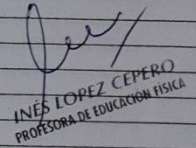 INÉS LOPEZ CEPERO
PROFESORA DE EDUCACIÓN FÍSICA